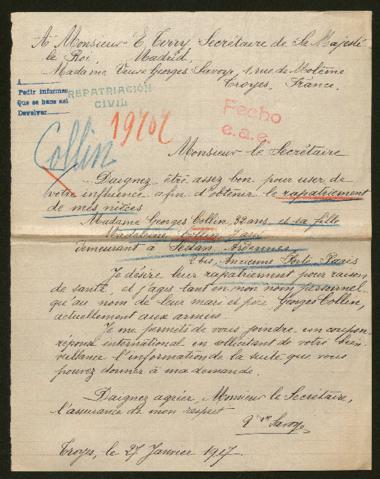 A Monsieur E Torry, Secrétaire de Sa Majesté
le Roi, Madrid.
Madame Veuve Georges Savoye, 1, rue de Molème
Troyes, France.
A
Pedir informes
Que se hace así
Devolver
REPATRIACIÓN
CIVIL
19707
Fecho
e.a.e.
Collin
Monsieur le Secrétaire
Daignez être assez bon pour user de
votre influence afin d'obtenir le rapatriement
de mes nièces
Madame Georges Collin, 32 ans et sa fille
Madeleine Collin, ans
demeurant à Sedan Ardennes
Ancienne Porte Paris
Je désire leur rapatriement pour raison
de santé, et j'agis tant en mon nom personnel
qu'au nom de leur mari et père Georges Collin,
actuellement aux armées.
Je me permets de vous joindre un coupon
réponse international en sollicitant de votre bien-
veillance l'information de la suite que vous
pouvez donner à ma demande.
Daignez agréer, Monsieur le Secrétaire,
l'assurance de mon respect
Vve Savoye
Troyes, le 27 Janvier 1917